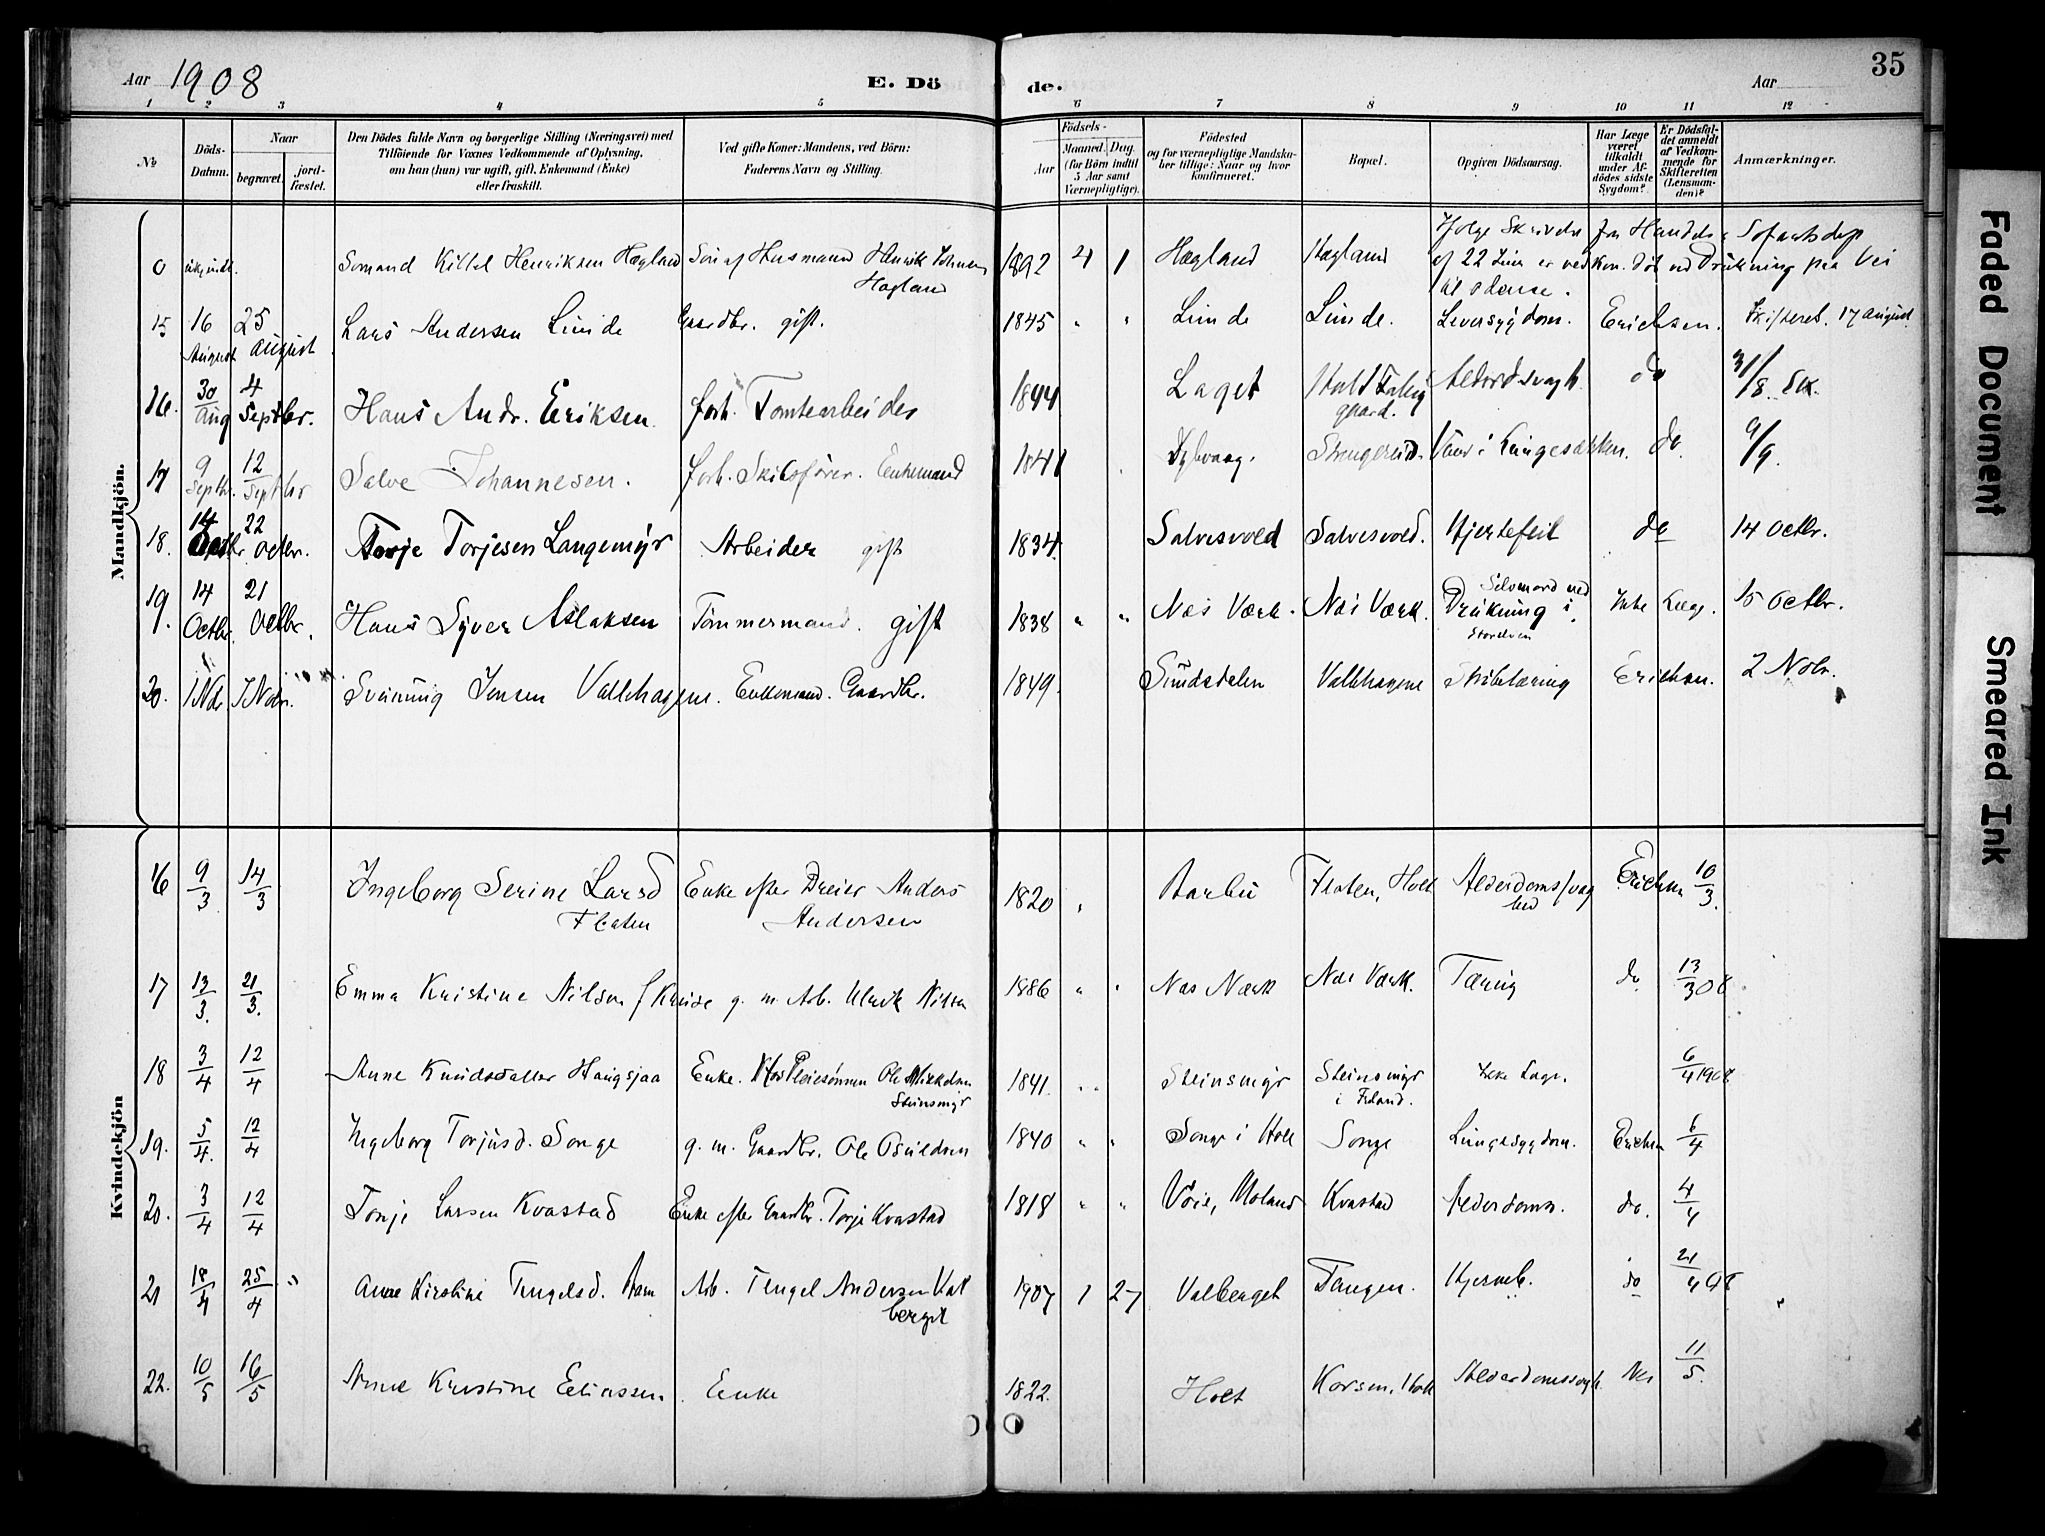 Aar 1908 E. Dö de. Aar 35
1 2 3 4 5 6 7 8 9 10 11 12
No
Döds-Datum.
Naar
begravet.
jord-fæstet.
Den Dödes fulde Navn og borgerlige Stilling (Næringsvei) med
Tilföiende for Voxnes Vedkommende af Oplysning,
om han (hun) var ugift, gift, Enkemand (Enke)
eller fraskilt.
Ved gifte Koner: Mandens, ved Börn:
Faderens Navn og Stilling.
Födsels-
Aar
Maaned. Dag.
(for Börn indtil
5 Aar samt
Værnepligtige).
Födested
og for værnepligtige Mandska-
ber tillige: Naar og hvor
konfirmeret.
Bopæl.
Opgiven Dödsaarsag.
Har Læge
været
tilkaldt
under Af-
dödes sidste
Sygdom?
Er Dödsfal-
det anmeldt
af Vedkom-
mende for
Skifteretten
(Lensman-
den)?
Anmærkninger.
Mandkjön.
0 Sömand Kittel Henriksen Hægland Sön af Husmand Henrik
Hægland 1892 4 1 Hægland Hægland
15 16 August 25 August Lars Andersen Linde Gaardbr. gift. 1845 " " Linde Linde. Leversygdom. Erichsen. Skifteret. 17 august
16. 30 Aug 4 Septbr. Hans Andr. Eriksen forh. Tomtearbeider 1844 Laget do 31/8 Sk.
17 9 Septbr. 12 Septbr Salve Johannesen. forh. Skibsförer. Enkemand 1841 Dybvaag. do. 9/9.
18. 14 Octbr. 22 Octbr. Torje Torjesen Langemyr Arbeider gift 1834. Salvesvold Salvesvold. Hjertefeil do 14 Octbr.
19. 14 Octbr. 21 Octbr. Hans Syver Aslaksen Tömmermand. gift 1838 " " Næs Værk. Næs Værk. Selvmord ved
Drukning i
Storelven Ikke Læge. 15 Octbr.
20. 1 Nov. 7 Nov. Svenning Jensen Vallehagene. Enkemand. Gaardbr. 1849. Sundsdalen Vallehagene Erichsen. 2 Nobr.
Kvindekjön
16 9/3 14/3 Ingeborg Serine Larsd
Fløten Enke efter Dreier Anders
Andersen 1820 " Barbu Fløten, Holt Alderdomssvag
hed Erichsen 10/3.
17 13/3. 21/3. Emma Kristine Nilsen f Kruse g. m. Arb. Ulrik Nilsen 1886 " " Næs Værk Næs Værk. Tæring do 13/3 08
18 3/4 12/4 Anne Knudsdatter Haugsjaa Enke. Ole
Steinsmyr 1841. " " Steinsmyr Steinsmyr
i Froland. Ikke Læge. 6/4 1908
19. 5/4. 12/4 Ingeborg Torjusd. Songe g. m. Gaardbr. Ole Osuldsen 1840 " " Songe i Holt Songe Lungesygdom. Erichsen 6/4
20. 3/4 12/4 Tonje Larsen Kvastad Enke efter Gaardbr. Torje Kvastad 1818 " " Vöie, Moland Kvastad Alderdoms. do. 4/4
21 18/4 25/4 " Anne Kirstine Tengelsd. Barn Arb. Tengel Andersen Val
berget 1907 1 27 Valberget Tangen. Hjerneb. do 21/4 08
22. 10/5 16/5 Anne Kristine Eliassen Enke 1822. Holt Alderdomssvagh. Nei 11/5.
Faded Document
Smeared Ink